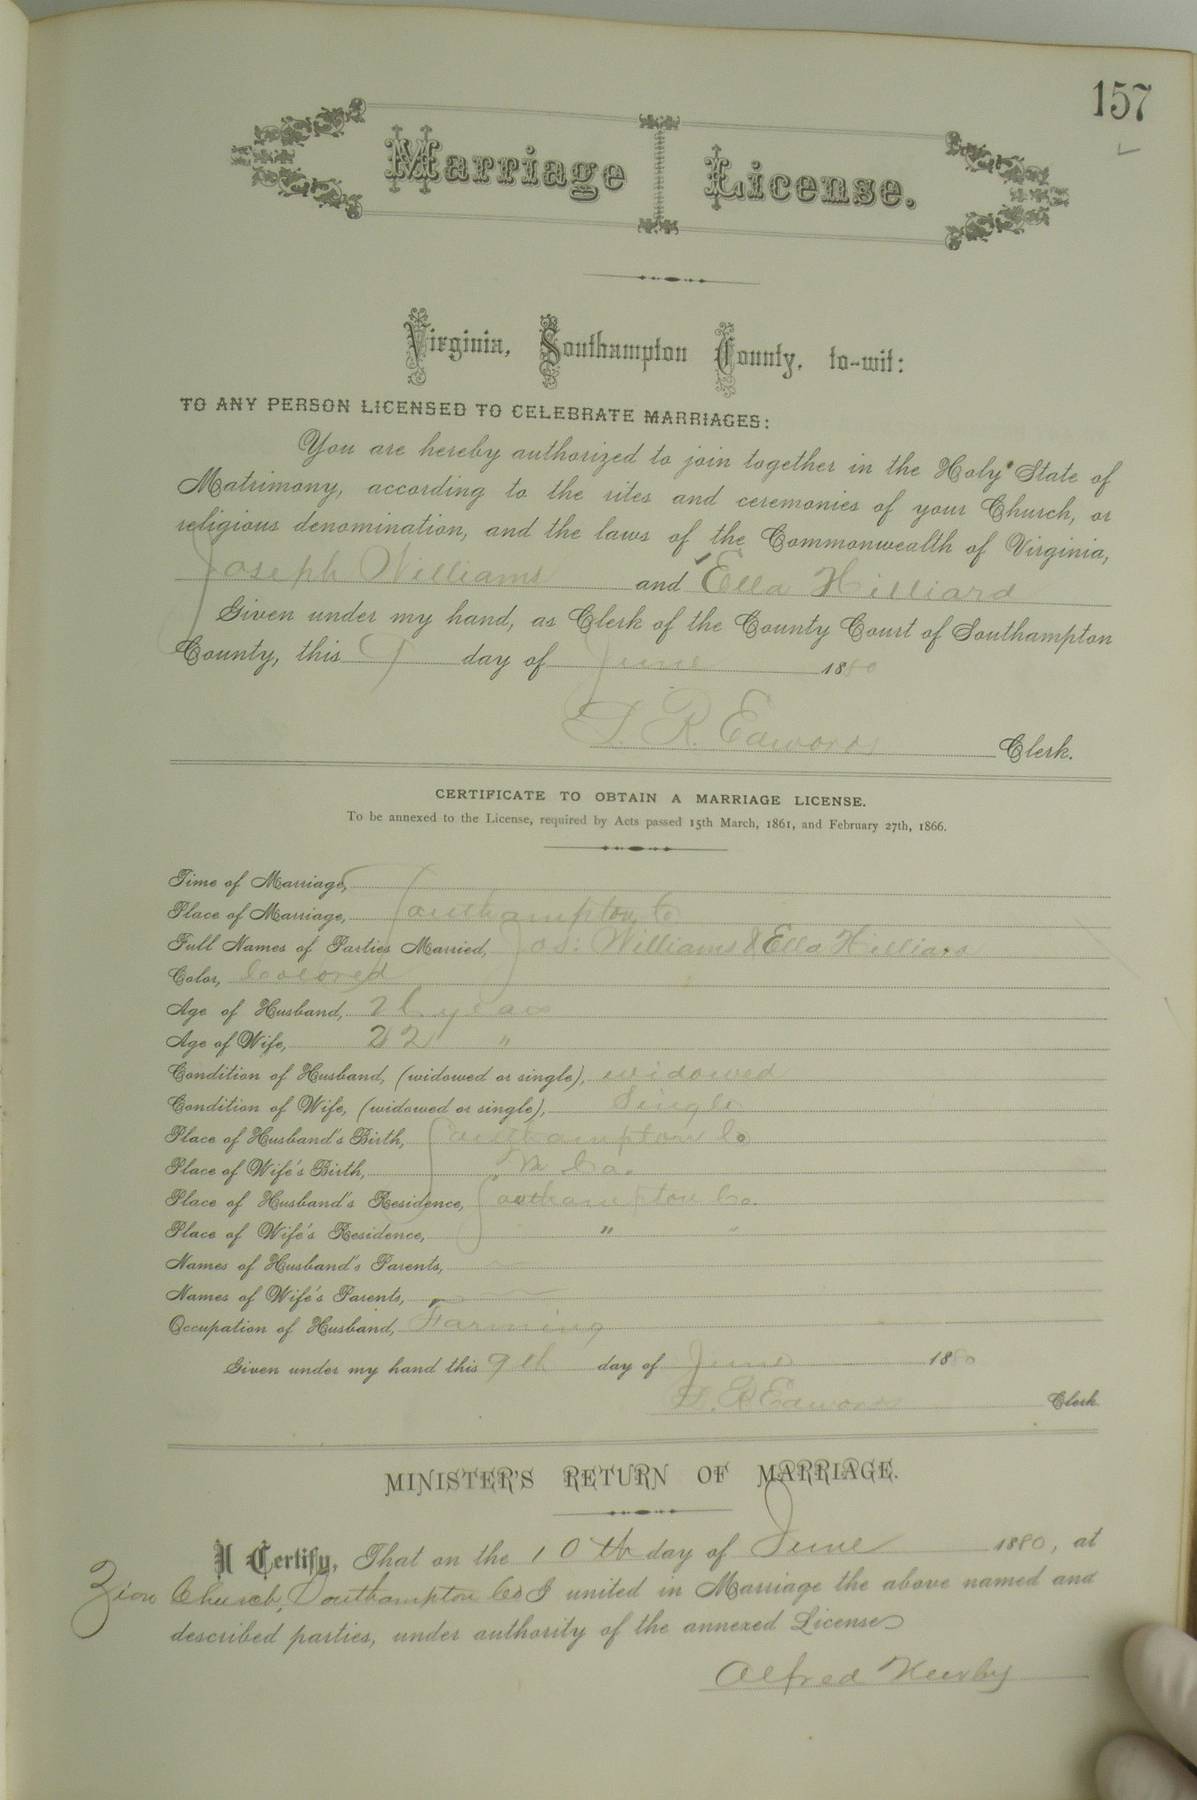 157
Marriage License.
Virginia, Southampton County, to-wit:
TO ANY PERSON LICENSED TO CELEBRATE MARRIAGES:
You are hereby authorized to join together in the Holy State of
Matrimony, according to the rites and ceremonies of your Church, or
religious denomination, and the laws of the Commonwealth of Virginia,
Joseph Williams and Ella Hilliard
Given under my hand, as Clerk of the County Court of Southampton
County, this 9 day of June 1880
L. R. Edwards Clerk.
CERTIFICATE TO OBTAIN A MARRIAGE LICENSE.
To be annexed to the License, required by Acts passed 15th March, 1861, and February 27th, 1866.
Time of Marriage,
Place of Marriage, Southampton Co
Full Names of Parties Married, Jos: Williams & Ella Hilliard
Color, Colored
Age of Husband, 26 years
Age of Wife, 22 "
Condition of Husband, (widowed or single), widowed
Condition of Wife, (widowed or single), Single
Place of Husband's Birth, Southampton Co
Place of Wife's Birth, N Ca.
Place of Husband's Residence, Southampton Co.
Place of Wife's Residence, " "
Names of Husband's Parents,
Names of Wife's Parents,
Occupation of Husband, Farming
Given under my hand this 9th day of June 1880
L. R Edwards Clerk
MINISTER'S RETURN OF MARRIAGE.
I Certify, That on the 10th day of June 1880, at
Zion Church, Southampton Co I united in Marriage the above named and
described parties, under authority of the annexed License
Alfred